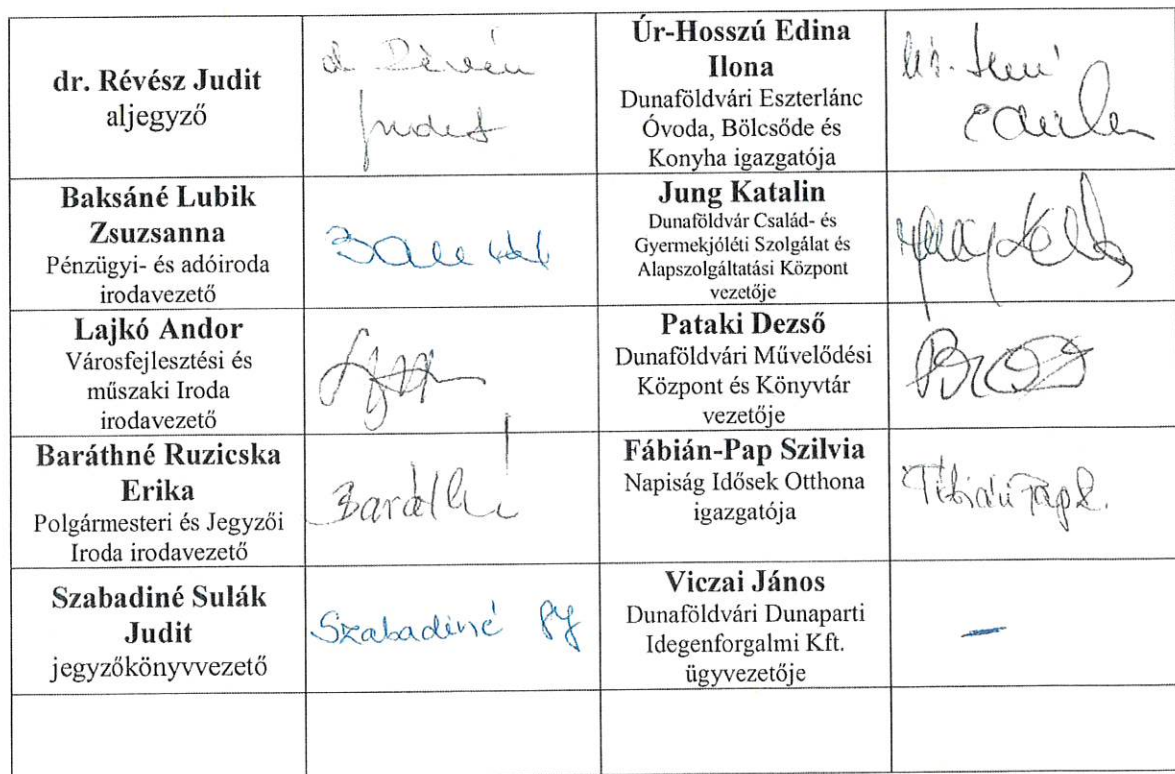 dr. Révész Judit
aljegyző
d. Révész
Judit
Úr-Hosszú Edina
Ilona
Dunaföldvári Eszterlánc
Óvoda, Bölcsőde és
Konyha igazgatója
Baksáné Lubik
Zsuzsanna
Pénzügyi- és adóiroda
irodavezető
Jung Katalin
Dunaföldvár Család- és
Gyermekjóléti Szolgálat és
Alapszolgáltatási Központ
vezetője
Lajkó Andor
Városfejlesztési és
műszaki Iroda
irodavezető
Pataki Dezső
Dunaföldvári Művelődési
Központ és Könyvtár
vezetője
Baráthné Ruzicska
Erika
Polgármesteri és Jegyzői
Iroda irodavezető
Baráthné
Fábián-Pap Szilvia
Napiság Idősek Otthona
igazgatója
Szabadiné Sulák
Judit
jegyzőkönyvvezető
Szabadiné
Viczai János
Dunaföldvári Dunaparti
Idegenforgalmi Kft.
ügyvezetője